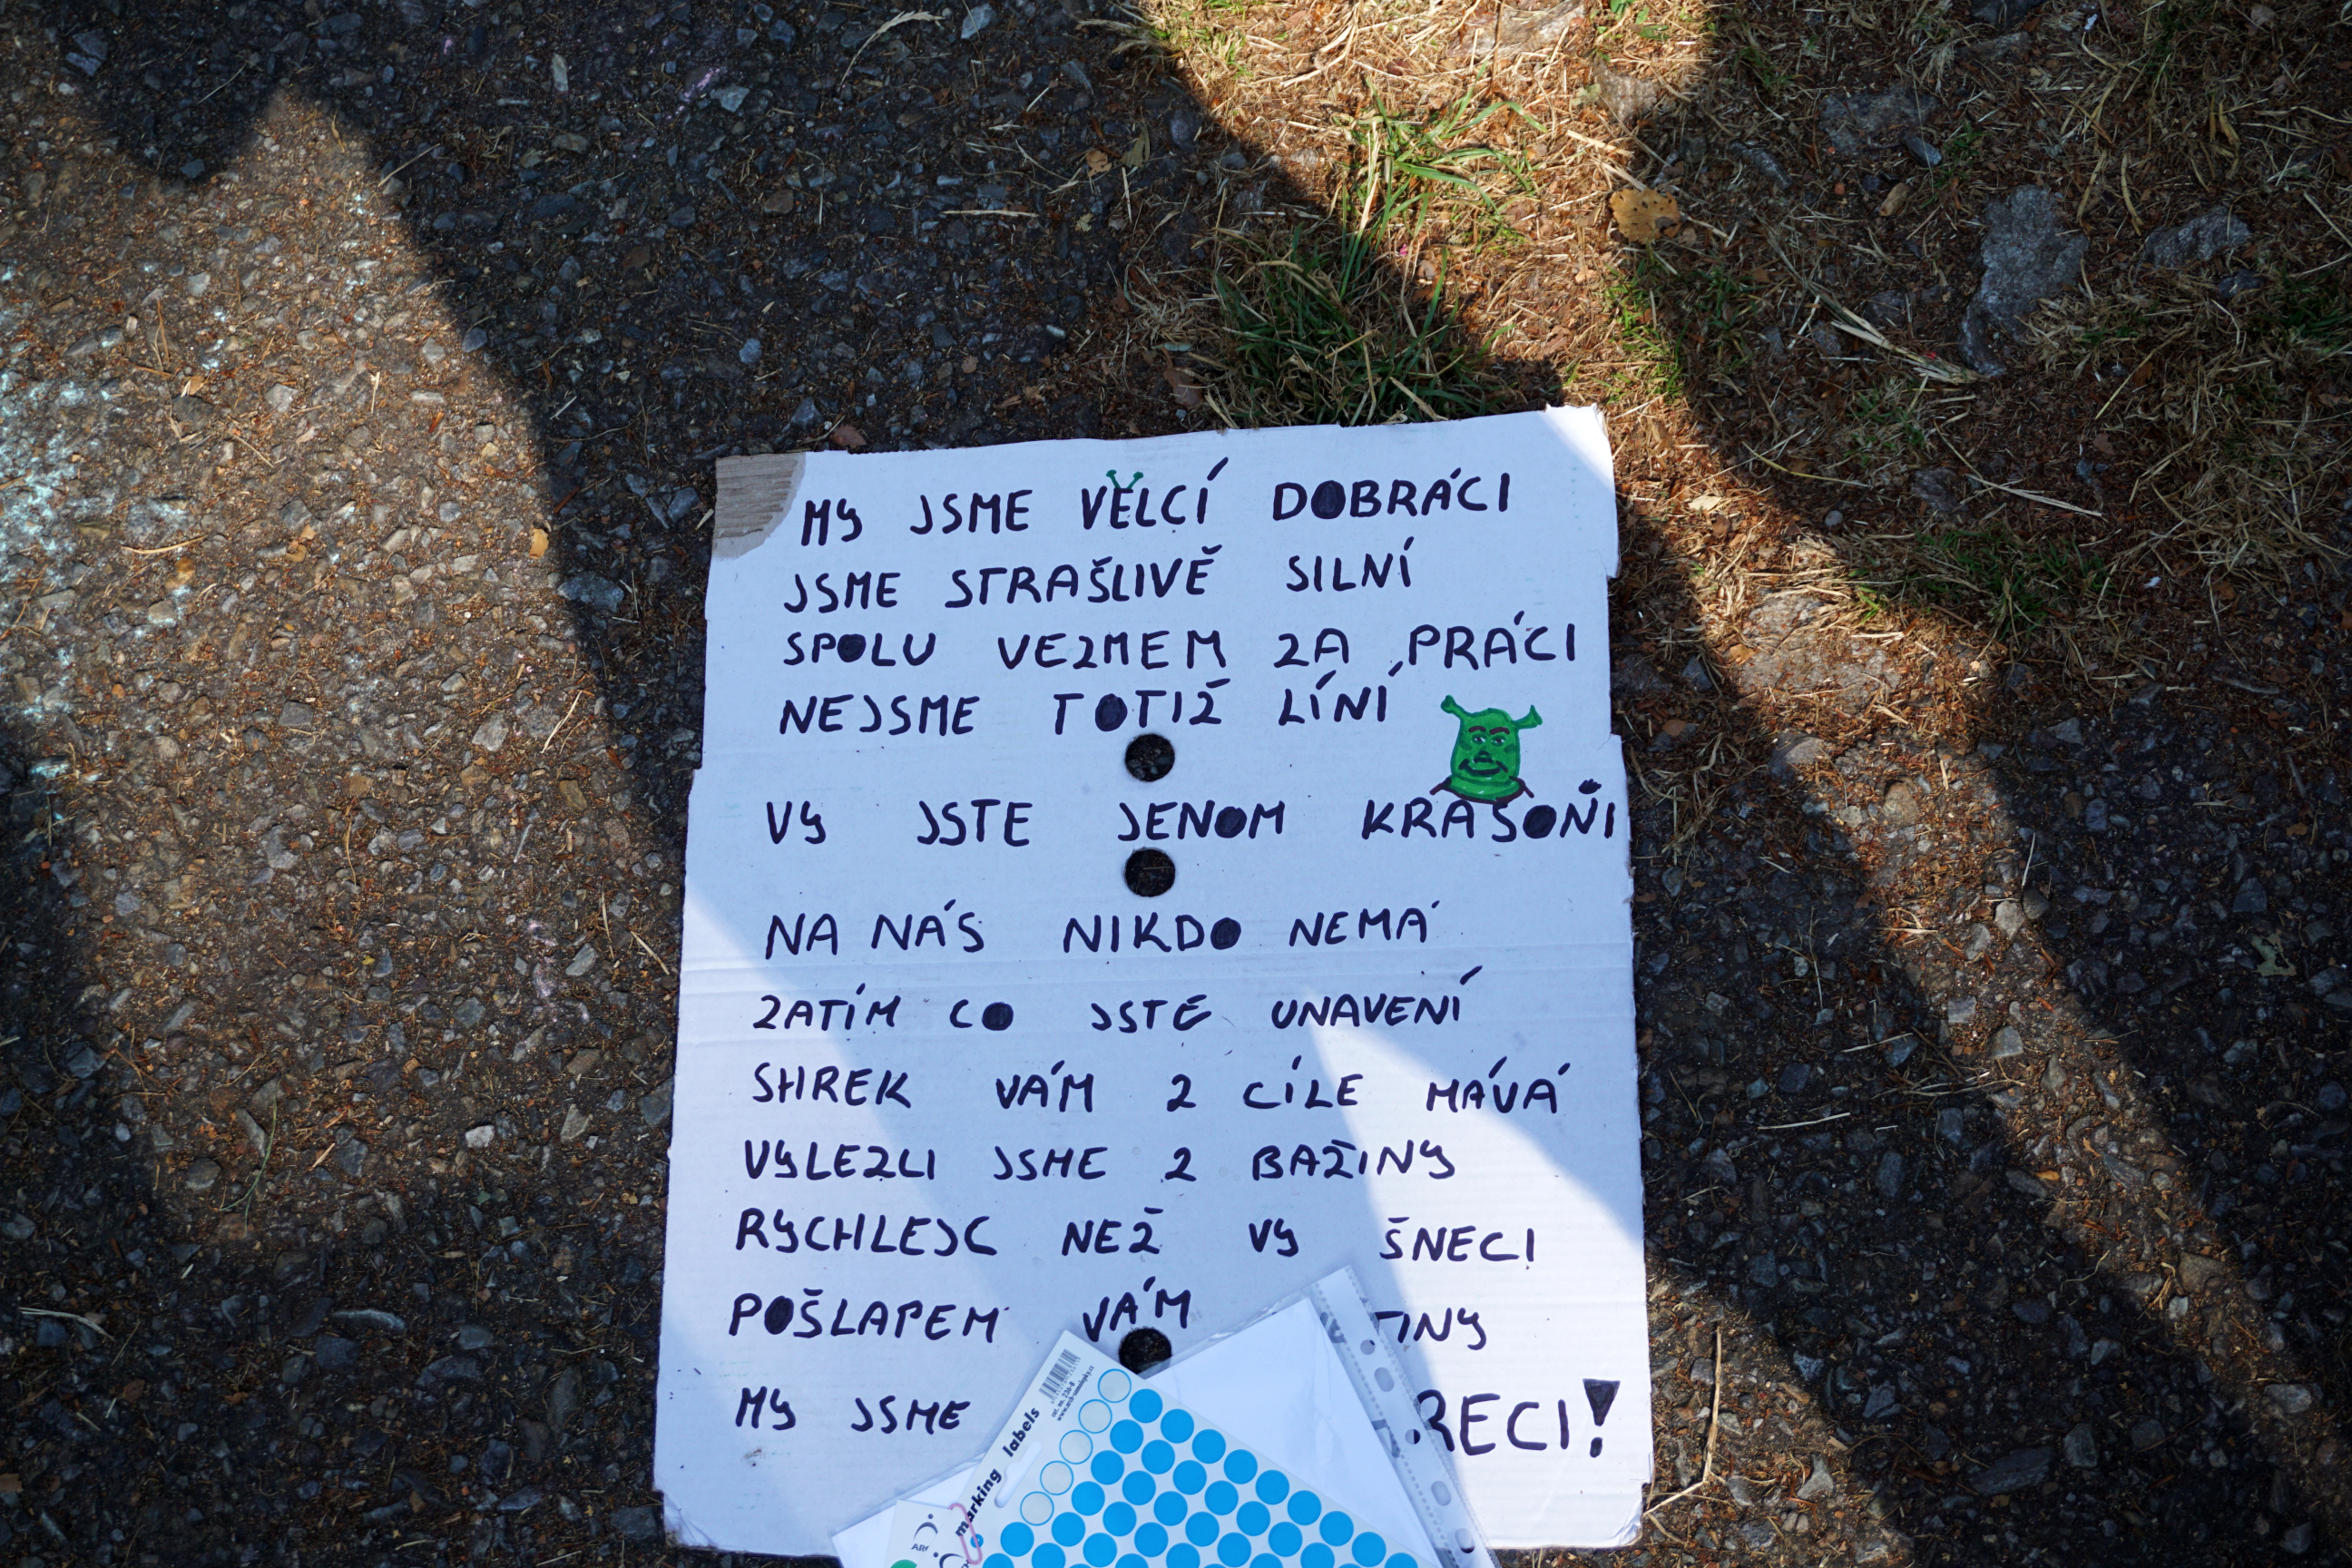 MY JSME VELCÍ DOBRÁCI
JSME STRAŠLIVĚ SILNÍ
SPOLU VEZMEM ZA PRÁCI
NEJSME TOTIŽ LÍNÍ
VY JSTE JENOM KRASOŇI
NA NÁS NIKDO NEMÁ
ZATÍM CO JSTE UNAVENÍ
SHREK VÁM Z CÍLE MÁVÁ
VYLEZLI JSME Z BAŽINY
RYCHLEJC NEŽ VY ŠNECI
POŠLAPEM VÁM INY
MY JSME RECI!
marking labels
cat. no. 236-8